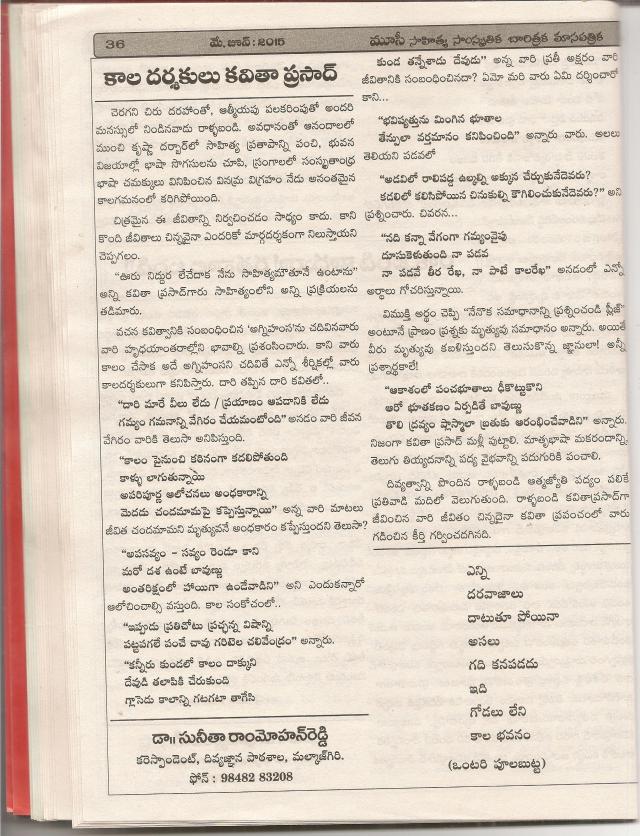 36
మే, జూన్ : 2015
మూసీ సాహిత్య సాంస్కృతిక చారిత్రక మాసపత్రిక
కాల దర్శకులు కవితా ప్రసాద్
చెరగని చిరు దరహాంతో, ఆత్మీయపు పలకరింపుతో అందరి
మనస్సులో నిండినవాడు రాళ్ళబండి. అవధానంతో ఆనందాలలో
ముంచి కృష్ణా దర్బార్‌లో సాహిత్య ప్రతాపాన్ని పంచి, భువన
విజయాల్లో భాషా సొగసులను చూపి, ప్రసంగాలలో సంస్కృతాంధ్ర
భాషా చమక్కులు వినిపించిన వినమ్ర విగ్రహం నేడు అనంతమైన
కాలగమనంలో కరిగిపోయింది.
చిత్రమైన ఈ జీవితాన్ని నిర్వచించడం సాధ్యం కాదు. కాని
కొంది జీవితాలు చిన్నవైనా ఎందరికో మార్గదర్శకంగా నిలుస్తాయని
చెప్పగలం.
"ఊరు నిద్దుర లేచేదాక నేను సాహిత్యమౌతూనే ఉంటాను"
అన్ని కవితా ప్రసాద్‌గారు సాహిత్యంలోని అన్ని ప్రక్రియలను
తడిమారు.
వచన కవిత్వానికి సంబంధించిన 'అగ్నిహంస'ను చదివినవారు
వారి హృధయాంతరాల్లోని భావాల్ని ప్రశంసించారు. కాని వారు
కాలం చేసాక అదే అగ్నిహంసని చదివితే ఎన్నో శీర్షికల్లో వారు
కాలదర్శకులుగా కనిపిస్తారు. దారి తప్పిన దారి కవితలో..
"దారి మారే వీలు లేదు / ప్రయాణం ఆపడానికి లేదు
గమ్యం గమనాన్ని వేగిరం చేయమంటోంది" అనడం వారి జీవన
వేగిరం వారికి తెలుసా అనిపిస్తుంది.
"కాలం పైనుంచి కఠినంగా కదలిపోతుంది
కాళ్ళు లాగుతున్నాయి
అపరిపూర్ణ ఆలోచనలు అంధకారాన్ని
మెదడు చందమామపై కప్పేస్తున్నాయి" అన్న వారి మాటలు
జీవిత చందమామని మృత్యువనే అంధకారం కప్పేస్తుందని తెలుసా?
"అపసవ్యం – సవ్యం రెండూ కాని
మరో దశ ఉంటే బావుణ్ణు
అంతరిక్షంలో హాయిగా ఉండేవాడిని" అని ఎందుకన్నారో
ఆలోచించాల్సి వస్తుంది. కాల సంకోచంలో..
"ఇప్పుడు ప్రతిచోటు ప్రచ్ఛన్న విషాన్ని
పట్టపగలే పంచే చావు గరిటెల చలివేంద్రం" అన్నారు.
"కన్నీరు కుండలో కాలం దాక్కుని
దేవుడి తలాపికి చేరుకుంది
గ్లాసెడు కాలాన్ని గటగటా తాగేసి
డా॥ సునీతా రాంమోహన్‌రెడ్డి
కరెస్పాండెంట్, దివ్యజ్ఞాన పాఠశాల, మల్కాజ్‌గిరి.
ఫోన్ : 98482 83208
కుండ తన్నేశాడు దేవుడు" అన్న వారి ప్రతీ అక్షరం వారి
జీవితానికి సంబంధించినదా? ఏమో మరి వారు ఏమి దర్శించారో
కాని...
"భవిష్యత్తును మింగిన భూతాల
తేన్పులా వర్తమానం కనిపించింది" అన్నారు వారు. అలలు
తెలియని పడవలో
"అడవిలో రాలిపడ్డ ఉల్కల్ని అక్కున చేర్చుకునేదెవరు?
కడలిలో కలిసిపోయిన చినుకుల్ని కౌగిలించుకునేదెవరు?" అని
ప్రశ్నించారు. చివరన...
"నది కన్నా వేగంగా గమ్యంవైపు
దూసుకెళుతుంది నా పడవ
నా పడవే తీర రేఖ, నా పాటే కాలరేఖ" అనడంలో ఎన్నో
అర్థాలు గోచరిస్తున్నాయి.
విముక్తి అర్థం చెప్పి "నేనొక సమాధానాన్ని ప్రశ్నించండి ప్లీజ్"
అంటూనే ప్రాణం ప్రశ్నకు మృత్యువు సమాధానం అన్నారు. అయితే
వీరు మృత్యువు కబళిస్తుందని తెలుసుకొన్న జ్ఞానులా! అన్నీ
ప్రశ్నార్థకాలే!
"ఆకాశంలో పంచభూతాలు ఢీకొట్టుకొని
ఆరో భూతకణం ఏర్పడితే బావుణ్ణు
తొలి ద్రవ్యం ప్లాస్మాలా బ్రతుకు ఆరంభించేవాడిని" అన్నారు.
నిజంగా కవితా ప్రసాద్ మళ్లీ పుట్టాలి. మాతృభాషా మకరందాన్ని,
తెలుగు తియ్యదనాన్ని పద్య వైభవాన్ని పదుగురికి పంచాలి.
దివ్యత్వాన్ని పొందిన రాళ్ళబండి ఆత్మజ్యోతి పద్యం పలికే
ప్రతివాడి మదిలో వెలుగుతుంది. రాళ్ళబండి కవితాప్రసాద్‌గా
జీవించిన వారి జీవితం చిన్నదైనా కవితా ప్రపంచంలో వారు
గడించిన కీర్తి గర్వించదగినది.
ఎన్ని
దరవాజాలు
దాటుతూ పోయినా
అసలు
గది కనపడదు
ఇది
గోడలు లేని
కాల భవనం
(ఒంటరి పూలబుట్ట)